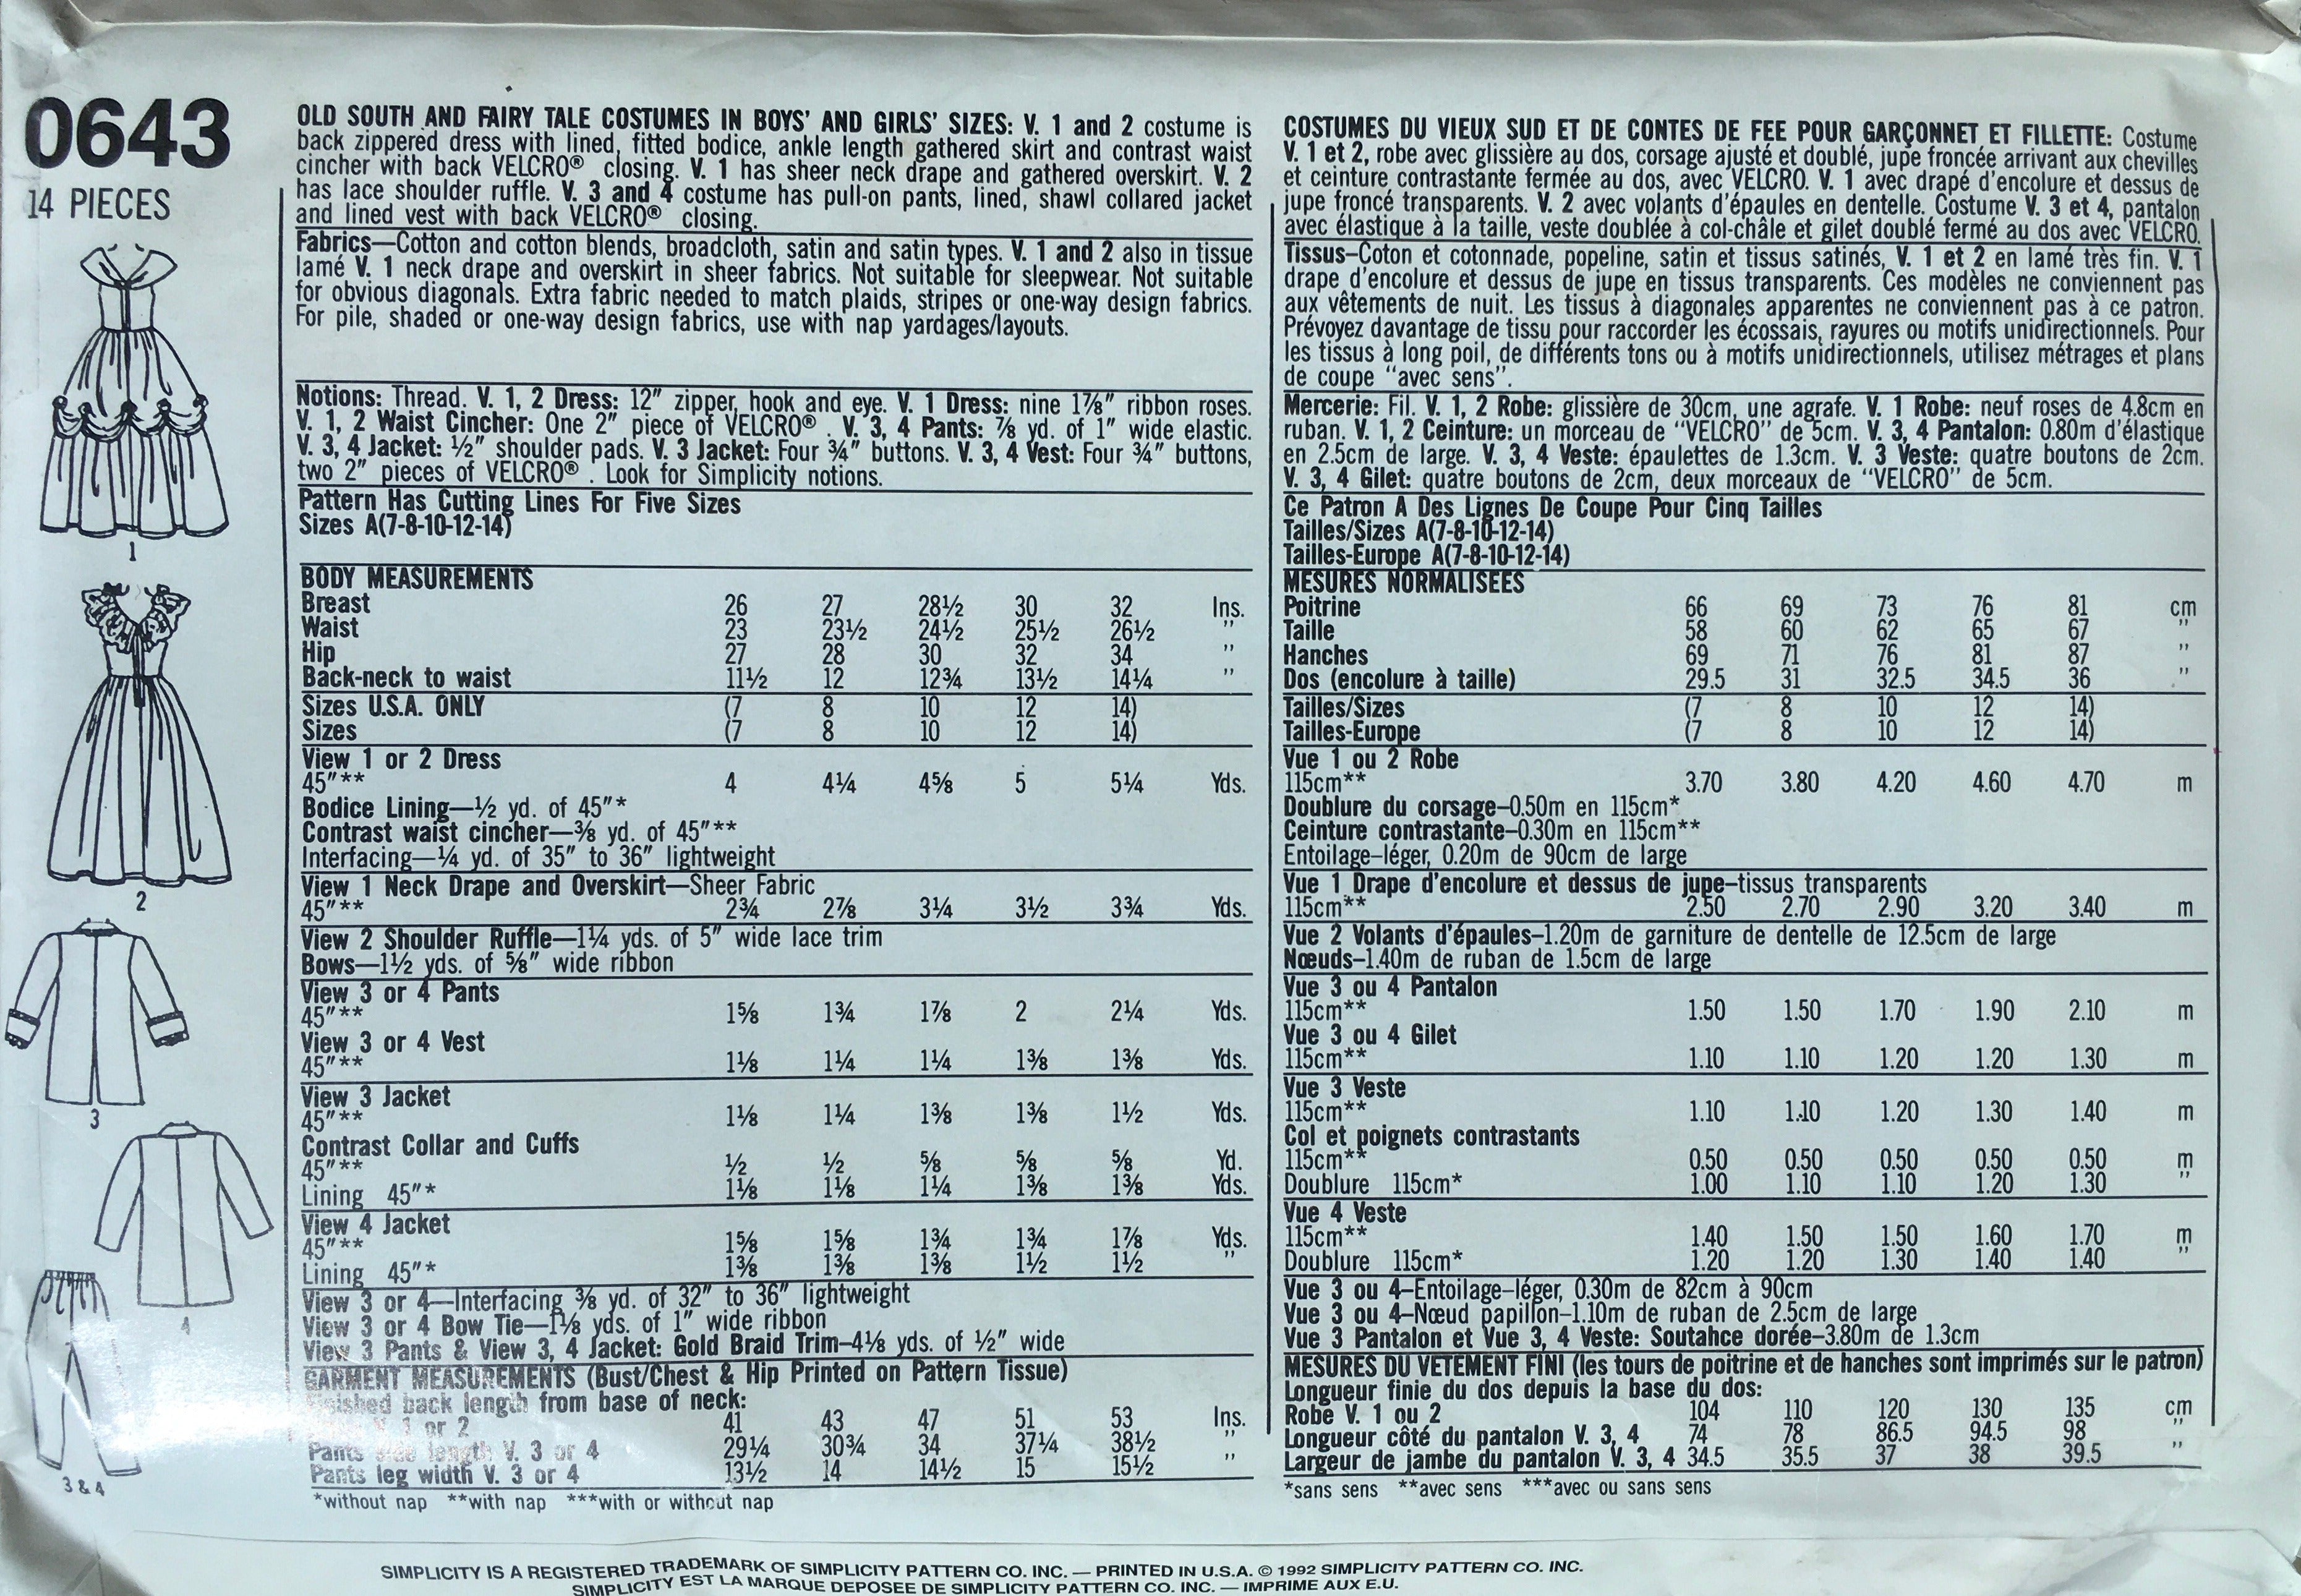 0643
14 PIECES
1
2
3
4
3 & 4
OLD SOUTH AND FAIRY TALE COSTUMES IN BOYS' AND GIRLS' SIZES: V. 1 and 2 costume is
back zippered dress with lined, fitted bodice, ankle length gathered skirt and contrast waist
cincher with back VELCRO® closing. V. 1 has sheer neck drape and gathered overskirt. V. 2
has lace shoulder ruffle. V. 3 and 4 costume has pull-on pants, lined, shawl collared jacket
and lined vest with back VELCRO® closing.
Fabrics—Cotton and cotton blends, broadcloth, satin and satin types. V. 1 and 2 also in tissue
lamé V. 1 neck drape and overskirt in sheer fabrics. Not suitable for sleepwear. Not suitable
for obvious diagonals. Extra fabric needed to match plaids, stripes or one-way design fabrics.
For pile, shaded or one-way design fabrics, use with nap yardages/layouts.
Notions: Thread. V. 1, 2 Dress: 12" zipper, hook and eye. V. 1 Dress: nine 1⅞" ribbon roses.
V. 1, 2 Waist Cincher: One 2" piece of VELCRO® . V. 3, 4 Pants: ⅞ yd. of 1" wide elastic.
V. 3, 4 Jacket: ½" shoulder pads. V. 3 Jacket: Four ¾" buttons. V. 3, 4 Vest: Four ¾" buttons,
two 2" pieces of VELCRO® . Look for Simplicity notions.
Pattern Has Cutting Lines For Five Sizes
Sizes A(7-8-10-12-14)
BODY MEASUREMENTS
Breast 26 27 28½ 30 32 Ins.
Waist 23 23½ 24½ 25½ 26½ "
Hip 27 28 30 32 34 "
Back-neck to waist 11½ 12 12¾ 13½ 14¼ "
Sizes U.S.A. ONLY (7 8 10 12 14)
Sizes (7 8 10 12 14)
View 1 or 2 Dress
45"** 4 4¼ 4⅝ 5 5¼ Yds.
Bodice Lining—½ yd. of 45"*
Contrast waist cincher—⅜ yd. of 45"**
Interfacing—¼ yd. of 35" to 36" lightweight
View 1 Neck Drape and Overskirt—Sheer Fabric
45"** 2¾ 2⅞ 3¼ 3½ 3¾ Yds.
View 2 Shoulder Ruffle—1¼ yds. of 5" wide lace trim
Bows—1½ yds. of ⅝" wide ribbon
View 3 or 4 Pants
45"** 1⅝ 1¾ 1⅞ 2 2¼ Yds.
View 3 or 4 Vest
45"** 1⅛ 1¼ 1¼ 1⅜ 1⅜ Yds.
View 3 Jacket
45"** 1⅛ 1¼ 1⅜ 1⅜ 1½ Yds.
Contrast Collar and Cuffs
45"** ½ ½ ⅝ ⅝ ⅝ Yd.
Lining 45"* 1⅛ 1⅛ 1¼ 1⅜ 1⅜ Yds.
View 4 Jacket
45"** 1⅝ 1⅝ 1¾ 1¾ 1⅞ Yds.
Lining 45"* 1⅜ 1⅜ 1⅜ 1½ 1½ "
View 3 or 4—Interfacing ⅜ yd. of 32" to 36" lightweight
View 3 or 4 Bow Tie—1⅛ yds. of 1" wide ribbon
View 3 Pants & View 3, 4 Jacket: Gold Braid Trim–4⅛ yds. of ½" wide
GARMENT MEASUREMENTS (Bust/Chest & Hip Printed on Pattern Tissue)
Finished back length from base of neck:
1 or 2 41 43 47 51 53 Ins.
Pants side length V. 3 or 4 29¼ 30¾ 34 37¼ 38½ "
Pants leg width V. 3 or 4 13½ 14 14½ 15 15½ "
*without nap **with nap ***with or without nap
COSTUMES DU VIEUX SUD ET DE CONTES DE FEE POUR GARÇONNET ET FILLETTE: Costume
V. 1 et 2, robe avec glissière au dos, corsage ajusté et doublé, jupe froncée arrivant aux chevilles
et ceinture contrastante fermée au dos, avec VELCRO. V. 1 avec drapé d'encolure et dessus de
jupe froncé transparents. V. 2 avec volants d'épaules en dentelle. Costume V. 3 et 4, pantalon
avec élastique à la taille, veste doublée à col-châle et gilet doublé fermé au dos avec VELCRO.
Tissus–Coton et cotonnade, popeline, satin et tissus satinés, V. 1 et 2 en lamé très fin. V. 1
drape d'encolure et dessus de jupe en tissus transparents. Ces modèles ne conviennent pas
aux vêtements de nuit. Les tissus à diagonales apparentes ne conviennent pas à ce patron.
Prévoyez davantage de tissu pour raccorder les écossais, rayures ou motifs unidirectionnels. Pour
les tissus à long poil, de différents tons ou à motifs unidirectionnels, utilisez métrages et plans
de coupe "avec sens".
Mercerie: Fil. V. 1, 2 Robe: glissière de 30cm, une agrafe. V. 1 Robe: neuf roses de 4.8cm en
ruban. V. 1, 2 Ceinture: un morceau de "VELCRO" de 5cm. V. 3, 4 Pantalon: 0.80m d'élastique
en 2.5cm de large. V. 3, 4 Veste: épaulettes de 1.3cm. V. 3 Veste: quatre boutons de 2cm.
V. 3, 4 Gilet: quatre boutons de 2cm, deux morceaux de "VELCRO" de 5cm.
Ce Patron A Des Lignes De Coupe Pour Cinq Tailles
Tailles/Sizes A(7-8-10-12-14)
Tailles-Europe A(7-8-10-12-14)
MESURES NORMALISEES
Poitrine 66 69 73 76 81 cm
Taille 58 60 62 65 67 "
Hanches 69 71 76 81 87 "
Dos (encolure à taille) 29.5 31 32.5 34.5 36 "
Tailles/Sizes (7 8 10 12 14)
Tailles-Europe (7 8 10 12 14)
Vue 1 ou 2 Robe
115cm** 3.70 3.80 4.20 4.60 4.70 m
Doublure du corsage–0.50m en 115cm*
Ceinture contrastante–0.30m en 115cm**
Entoilage–léger, 0.20m de 90cm de large
Vue 1 Drape d'encolure et dessus de jupe–tissus transparents
115cm** 2.50 2.70 2.90 3.20 3.40 m
Vue 2 Volants d'épaules–1.20m de garniture de dentelle de 12.5cm de large
Nœuds–1.40m de ruban de 1.5cm de large
Vue 3 ou 4 Pantalon
115cm** 1.50 1.50 1.70 1.90 2.10 m
Vue 3 ou 4 Gilet
115cm** 1.10 1.10 1.20 1.20 1.30 m
Vue 3 Veste
115cm** 1.10 1.10 1.20 1.30 1.40 m
Col et poignets contrastants
115cm** 0.50 0.50 0.50 0.50 0.50 m
Doublure 115cm* 1.00 1.10 1.10 1.20 1.30 "
Vue 4 Veste
115cm** 1.40 1.50 1.50 1.60 1.70 m
Doublure 115cm* 1.20 1.20 1.30 1.40 1.40 "
Vue 3 ou 4–Entoilage–léger, 0.30m de 82cm à 90cm
Vue 3 ou 4–Nœud papillon–1.10m de ruban de 2.5cm de large
Vue 3 Pantalon et Vue 3, 4 Veste: Soutahce dorée–3.80m de 1.3cm
MESURES DU VETEMENT FINI (les tours de poitrine et de hanches sont imprimés sur le patron)
Longueur finie du dos depuis la base du dos:
Robe V. 1 ou 2 104 110 120 130 135 cm
Longueur côté du pantalon V. 3, 4 74 78 86.5 94.5 98 "
Largeur de jambe du pantalon V. 3, 4 34.5 35.5 37 38 39.5 "
*sans sens **avec sens ***avec ou sans sens
SIMPLICITY IS A REGISTERED TRADEMARK OF SIMPLICITY PATTERN CO. INC. — PRINTED IN U.S.A. © 1992 SIMPLICITY PATTERN CO. INC.
SIMPLICITY EST LA MARQUE DEPOSEE DE SIMPLICITY PATTERN CO. INC. — IMPRIME AUX E.U.